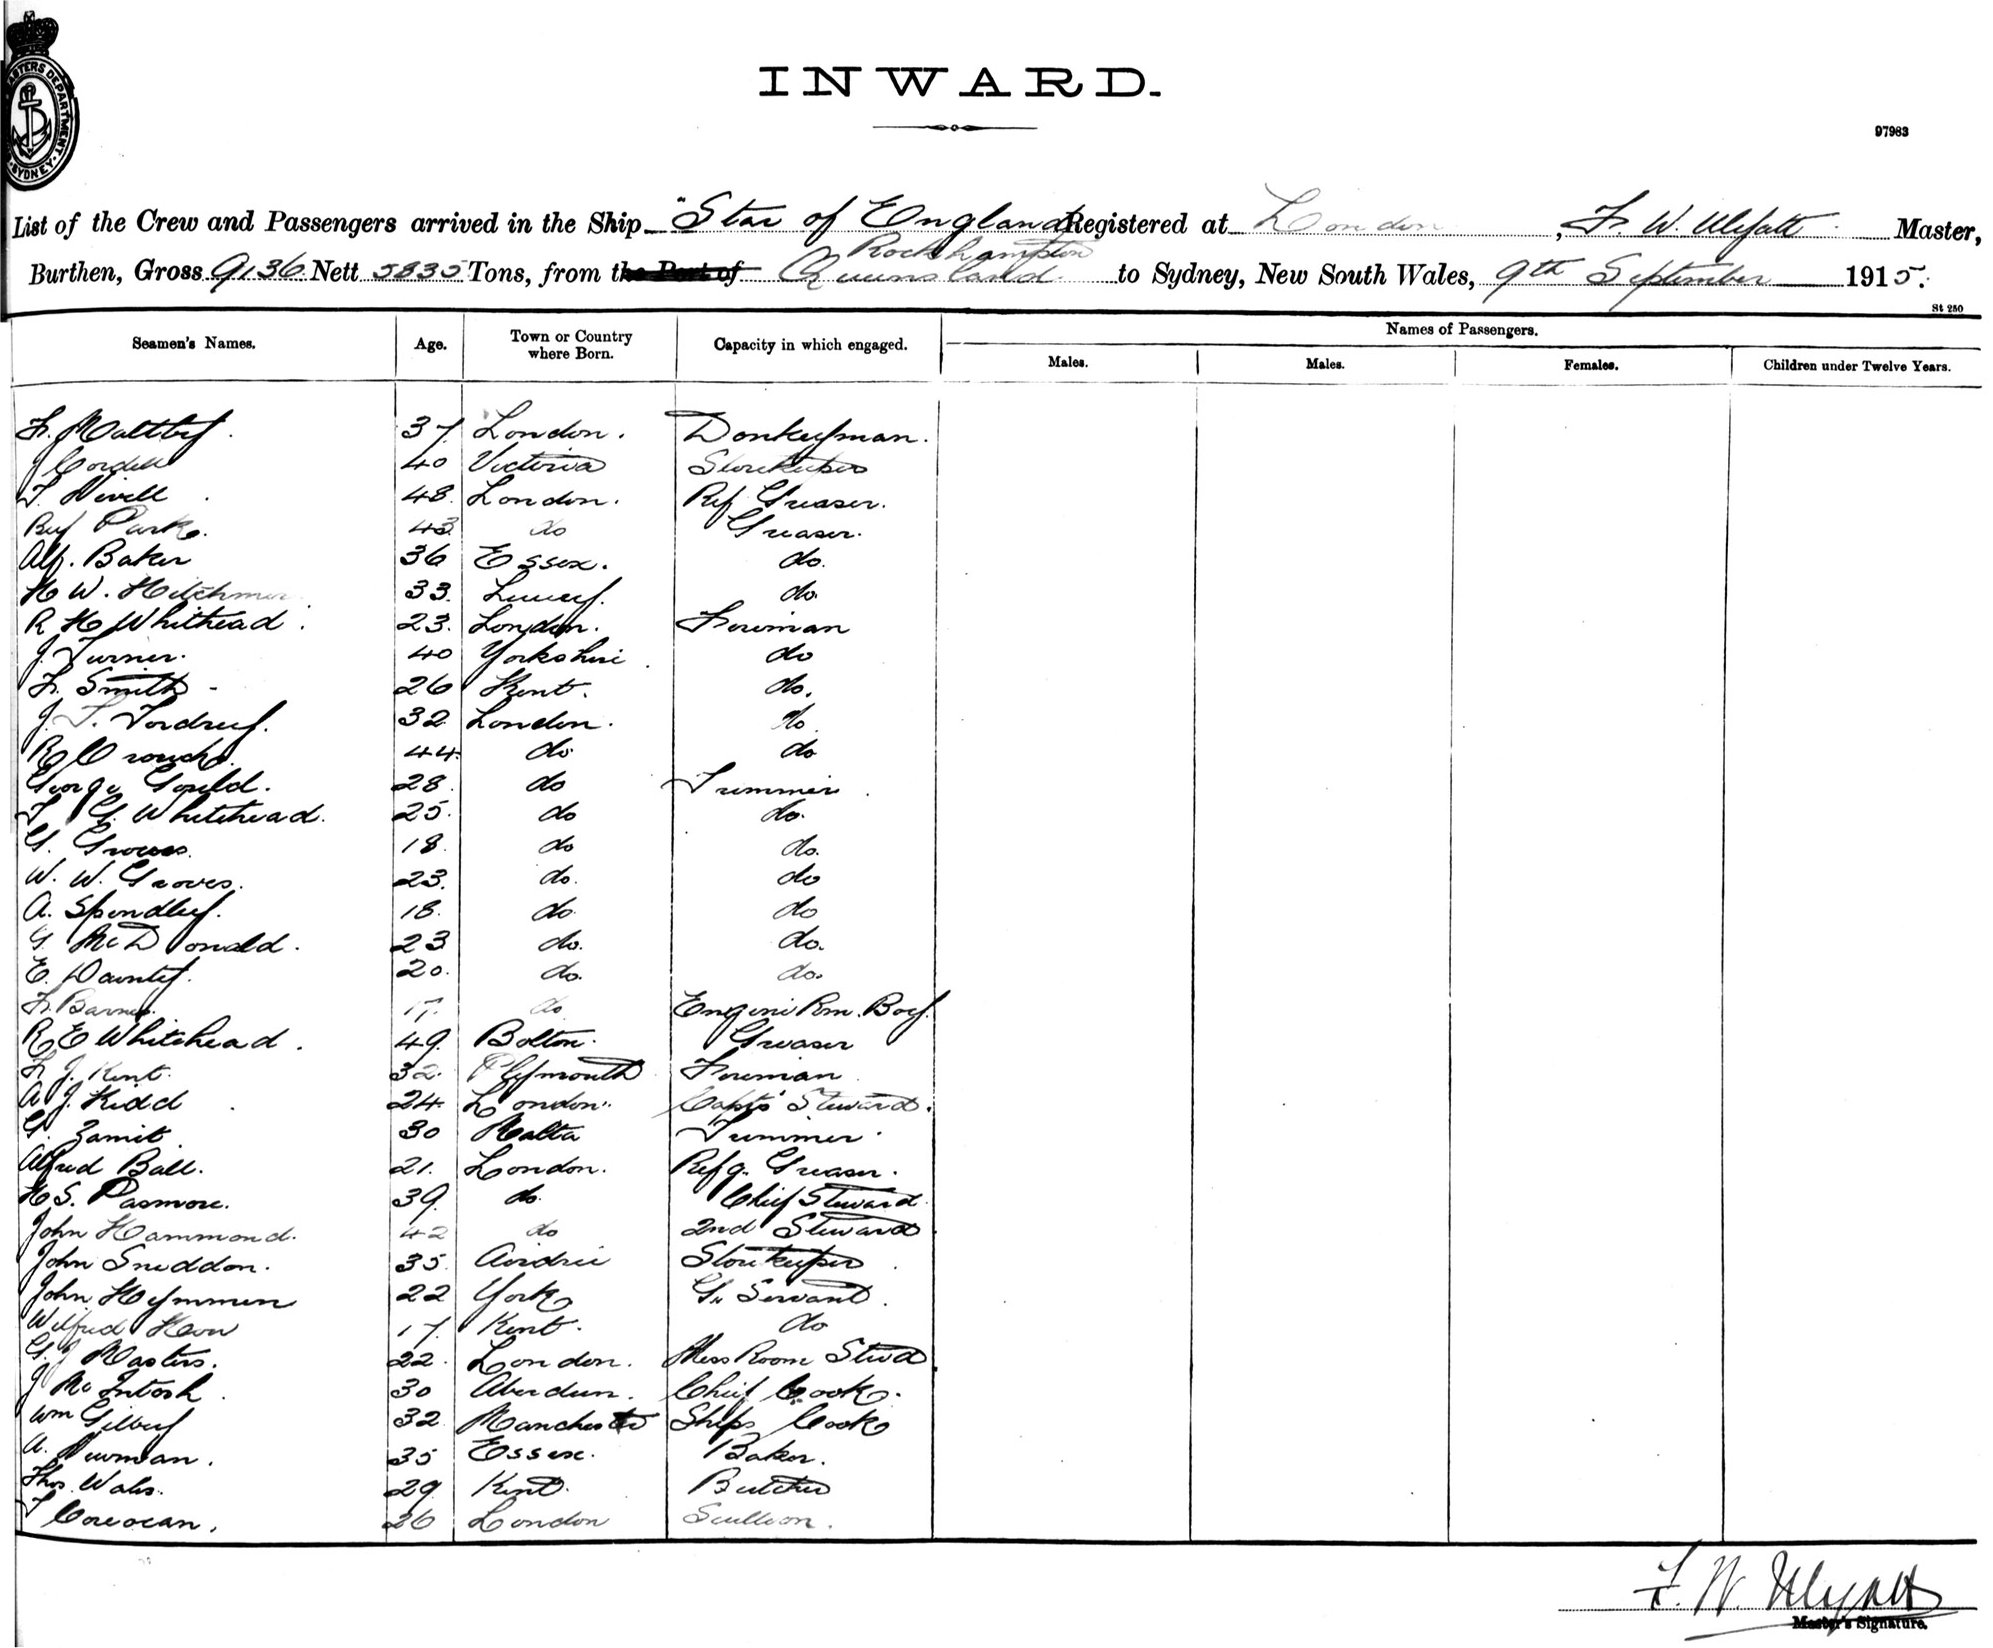 MASTERS DEPARTMENT. SYDNEY.
INWARD.
97983
List of the Crew and Passengers arrived in the Ship "Star of England Registered at London, F. W. Ulyatt Master,
Rockhampton
Burthen, Gross 9136 Nett 5835 Tons, from the Port of Queensland. to Sydney, New South Wales, 9th September 1915.
St 250
Seamen's Names. Age. Town or Country where Born. Capacity in which engaged. Names of Passengers.
Males. Males. Females. Children under Twelve Years.
F. Maltby. 37. London. Donkeyman.
J Cordell 40 Victoria Storekeeper
48. London. Ref Greaser.
Park. 43 do Greaser.
Alf. Baker 36 Essex. do.
H W. 33. do.
R H Whithead. 23. London. Fireman
J. Turner. 40 Yorkshire. do
F. Smith - 26 Kent. do.
J. T. Tordref. 32 London. do.
R Crouch. 44. do do
George Gould. 28. do Trimmer.
T G. Whitehead. 25. do do.
G. Groves. 18. do do.
W. W. Groves. 23. do. do
A. Spindley. 18. do. do
G McDonald. 23 do. do.
E. Dainty. 20. do. do.
F. Barnes. 17. do Engine Rm. Boy.
R E Whitehead. 49. Bolton. Greaser
F J. Kent. 32. Plymouth Fireman
A J. Kidd. 24. London. Capts' Steward.
G. Zamit. 30 Malta Trimmer.
Alfred Ball. 21. London. Refg. Greaser.
H S. Pasmore. 39. do. Chief Steward.
John Hammond. 42 do 2nd Steward
John Sneddon. 35. Airdrie Storekeeper.
John Hymmen 22 York Servant.
Wilfred How 17. Kent. do
G. J Masters. 22. London. Mess Room Stwd
J McIntosh. 30 Aberdeen. Chief Cook.
Wm Gilbey 32 Manchester Ships Cook
A. Newman. 35 Essex. Baker.
Thos. Wales. 29. Kent. Butcher
T Corcoran. 26 London Scullion.
F. W. Ulyatt
Master's Signature.